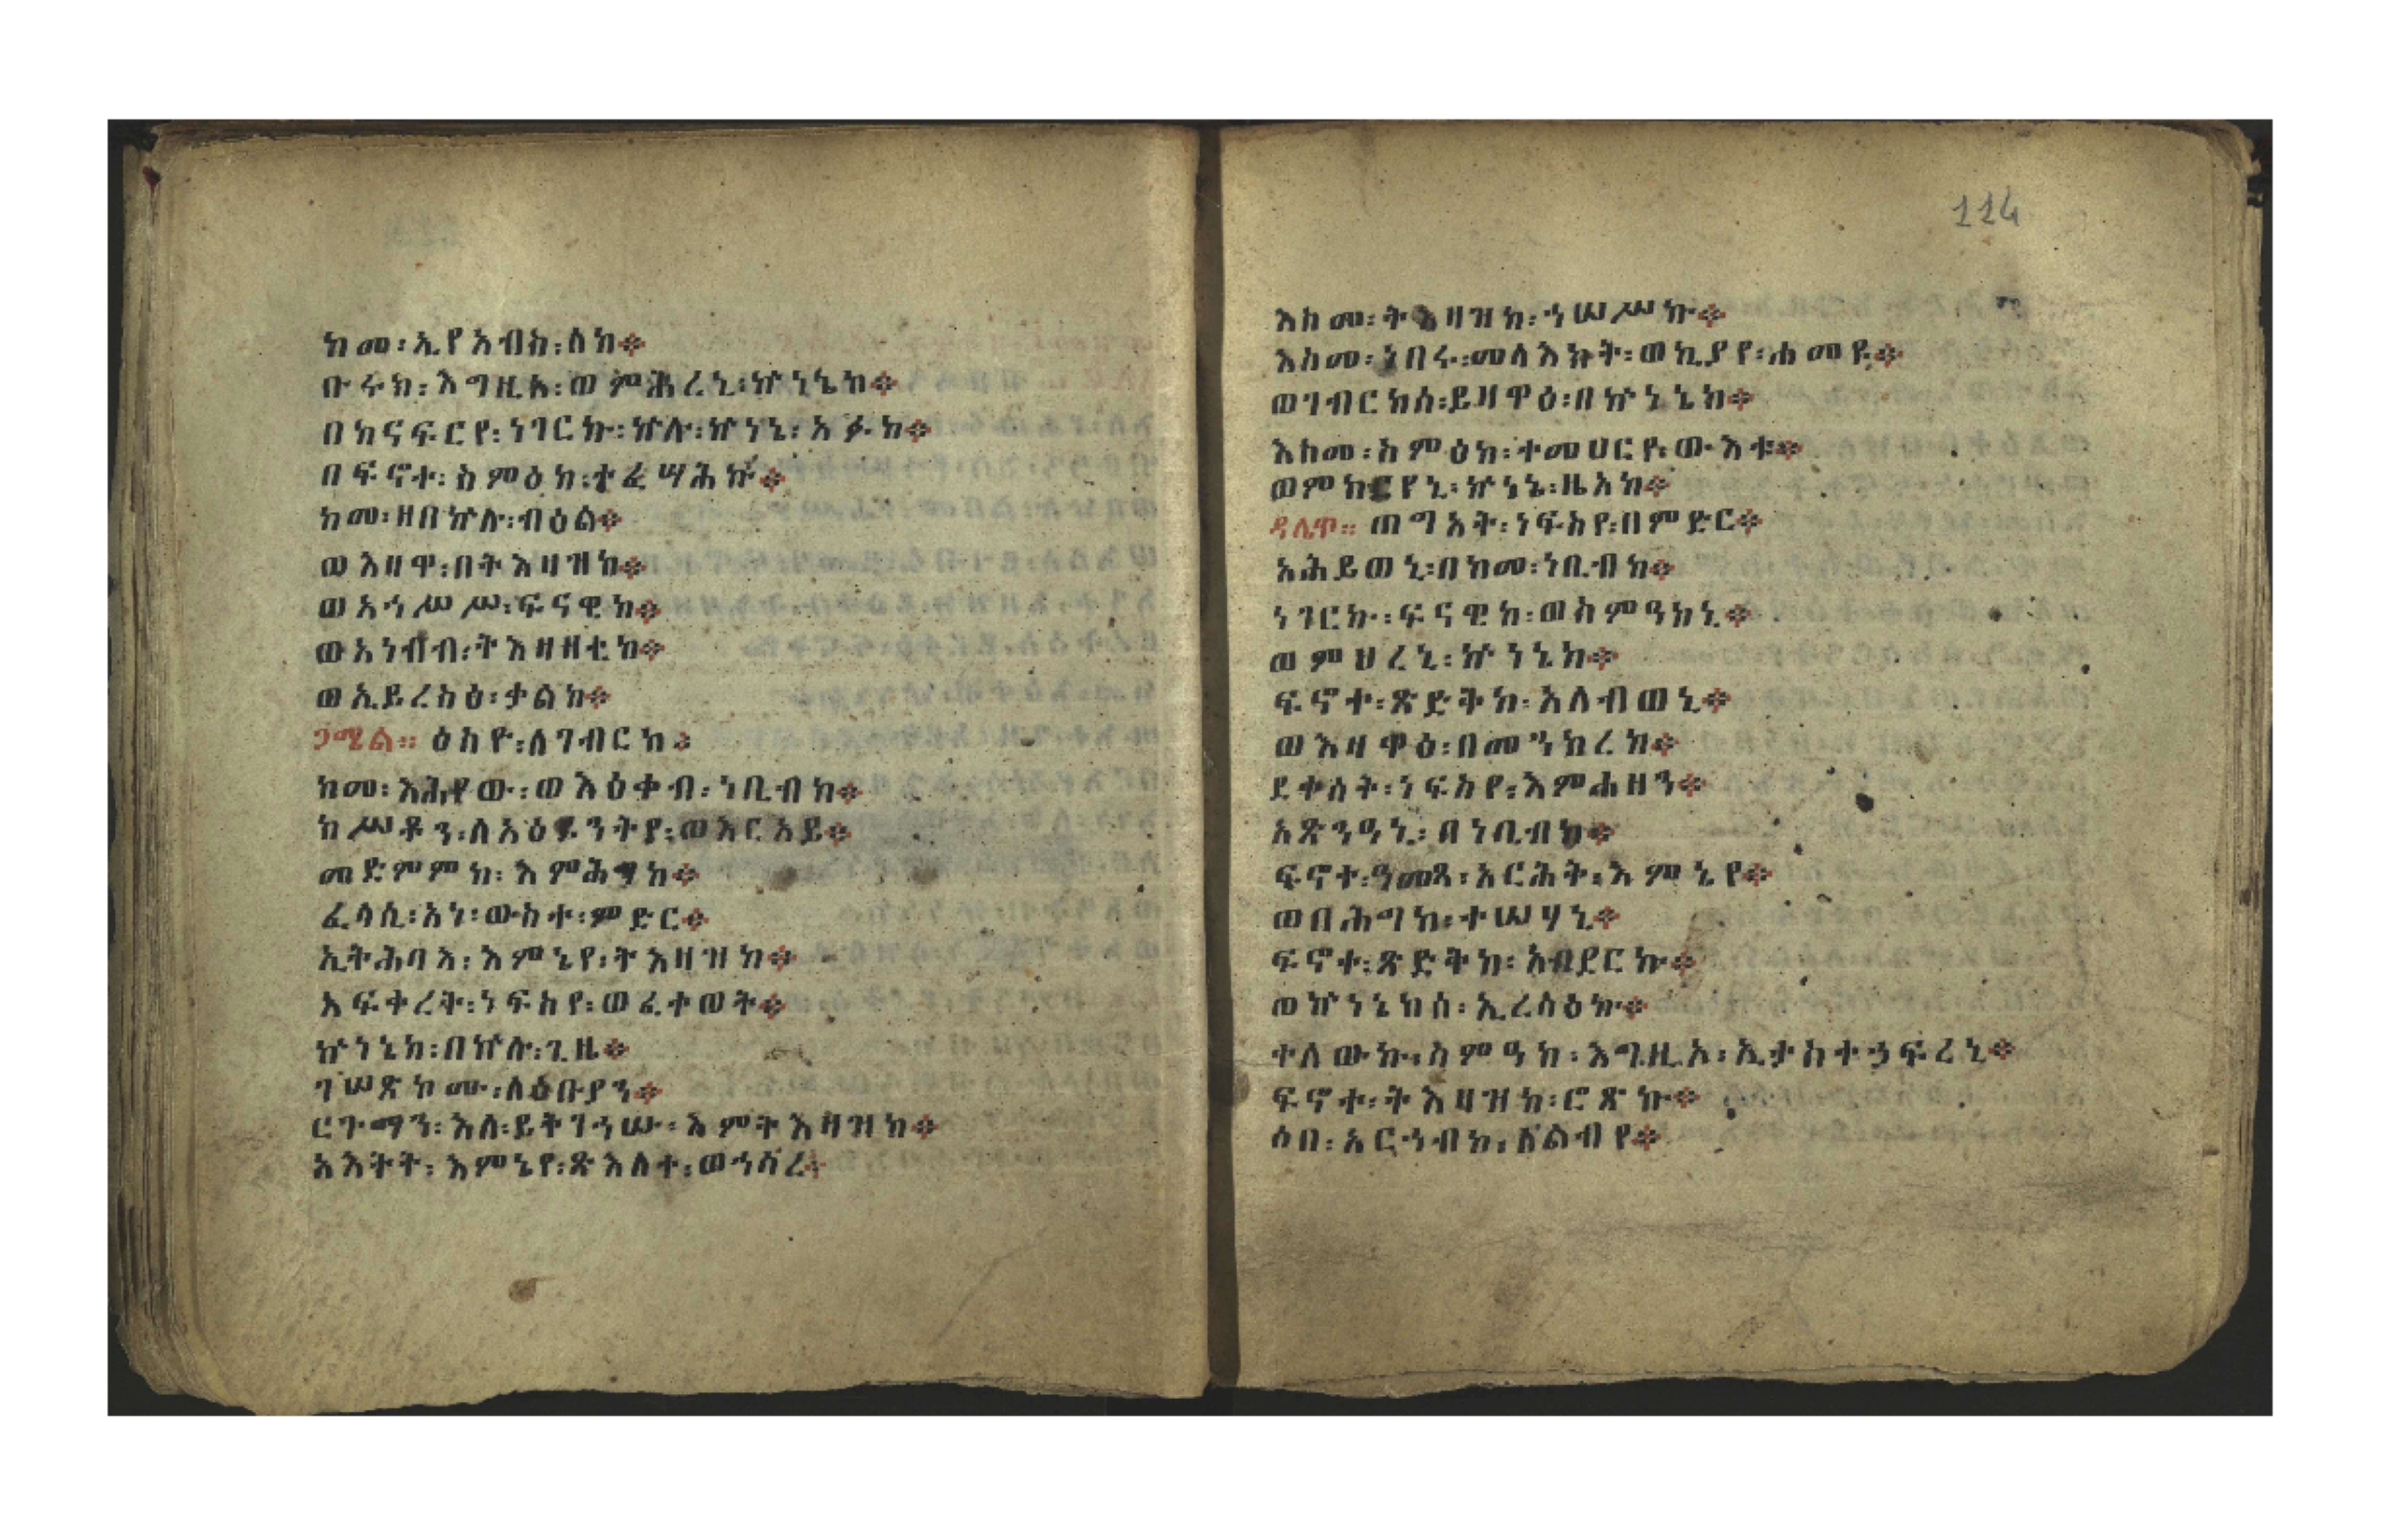 ከመ፡ኢየአብስ፡ለከ፨
ቡሩክ፡እግዚአ፡ወምሕረኒ፡ኵነኔከ፨
በከናፍርየ፡ነገርኩ፡ኵሉ፡ኵነኔ፡አፉከ፨
በፍኖተ፡ስምዕከ፡ተፈሣሕኩ፨
ከመ፡ዘበኵሉ፡ብዕል፨
ወእዛዋ፡በትእዛዝከ፨
ወአኀሥሥ፡ፍናዊከ፨
ወአነብብ፡ትእዛዘቲከ፨
ወኢይረስዕ፡ቃልከ፨
ጋሜል። ዕስዮ፡ለገብርከ፨
ከመ፡እሕየው፡ወእዕቀብ፡ነቢብከ፨
ከሥቶን፡ለአዕይንትየ፡ወእርአይ፨
መድምምከ፡እምሕግከ፨
ፈላሲ፡አነ፡ውስተ፡ምድር፨
ኢትሕባእ፡እምኔየ፡ትእዛዝከ፨
አፍቀረት፡ነፍስየ፡ወፈተወት፨
ኵነኔከ፡በኵሉ፡ጊዜ፨
ገሠጽኮሙ፡ለዕቡያን፨
ርጉማን፡እለ፡ይትገኀሡ፡እምትእዛዝከ፨
አእትት፡እምኔየ፡ጽእለተ፡ወኀሳረ፨
114
እስመ፡ትእዛዝከ፡ኀሠሥኩ፨
እስመ፡ነበሩ፡መላእክት፡ወኪያየ፡ሐመዩ፨
ወገብርከሰ፡ይዛዋዕ፡በኵነኔከ፨
እስመ፡ስምዕከ፡ተመሀርየ፡ውእቱ፨
ወምክርየኒ፡ኵነኔ፡ዜአከ፨
ዳሌጥ። ጠግአት፡ነፍስየ፡በምድር፨
አሕይወኒ፡በከመ፡ነቢብከ፨
ነገርኩ፡ፍናዊከ፡ወስምዓከኒ፨
ወምህረኒ፡ኵነኔከ፨
ፍኖተ፡ጽድትከ፡አለብወኒ፨
ወእዛዋዕ፡በመንክረከ፨
ደቀሰት፡ነፍስየ፡እምሐዘን፨
አጽንዓኒ፡በነቢብከ፨
ፍኖተ፡ዓመጻ፡አርሕት፡እምኔየ፨
ወበሕግከ፡ተሠሃኒ፨
ፍኖተ፡ጽድትከ፡አብደርኩ፨
ወኵነኔከሰ፡ኢረሳዕኩ፨
ተለውኩ፡ስምዓከ፡እግዚኦ፡ኢታስተኃፍረኒ፨
ፍኖተ፡ትእዛዝከ፡ሮጽኩ፨
ሶበ፡አርኀብከ፡ለልብየ፨